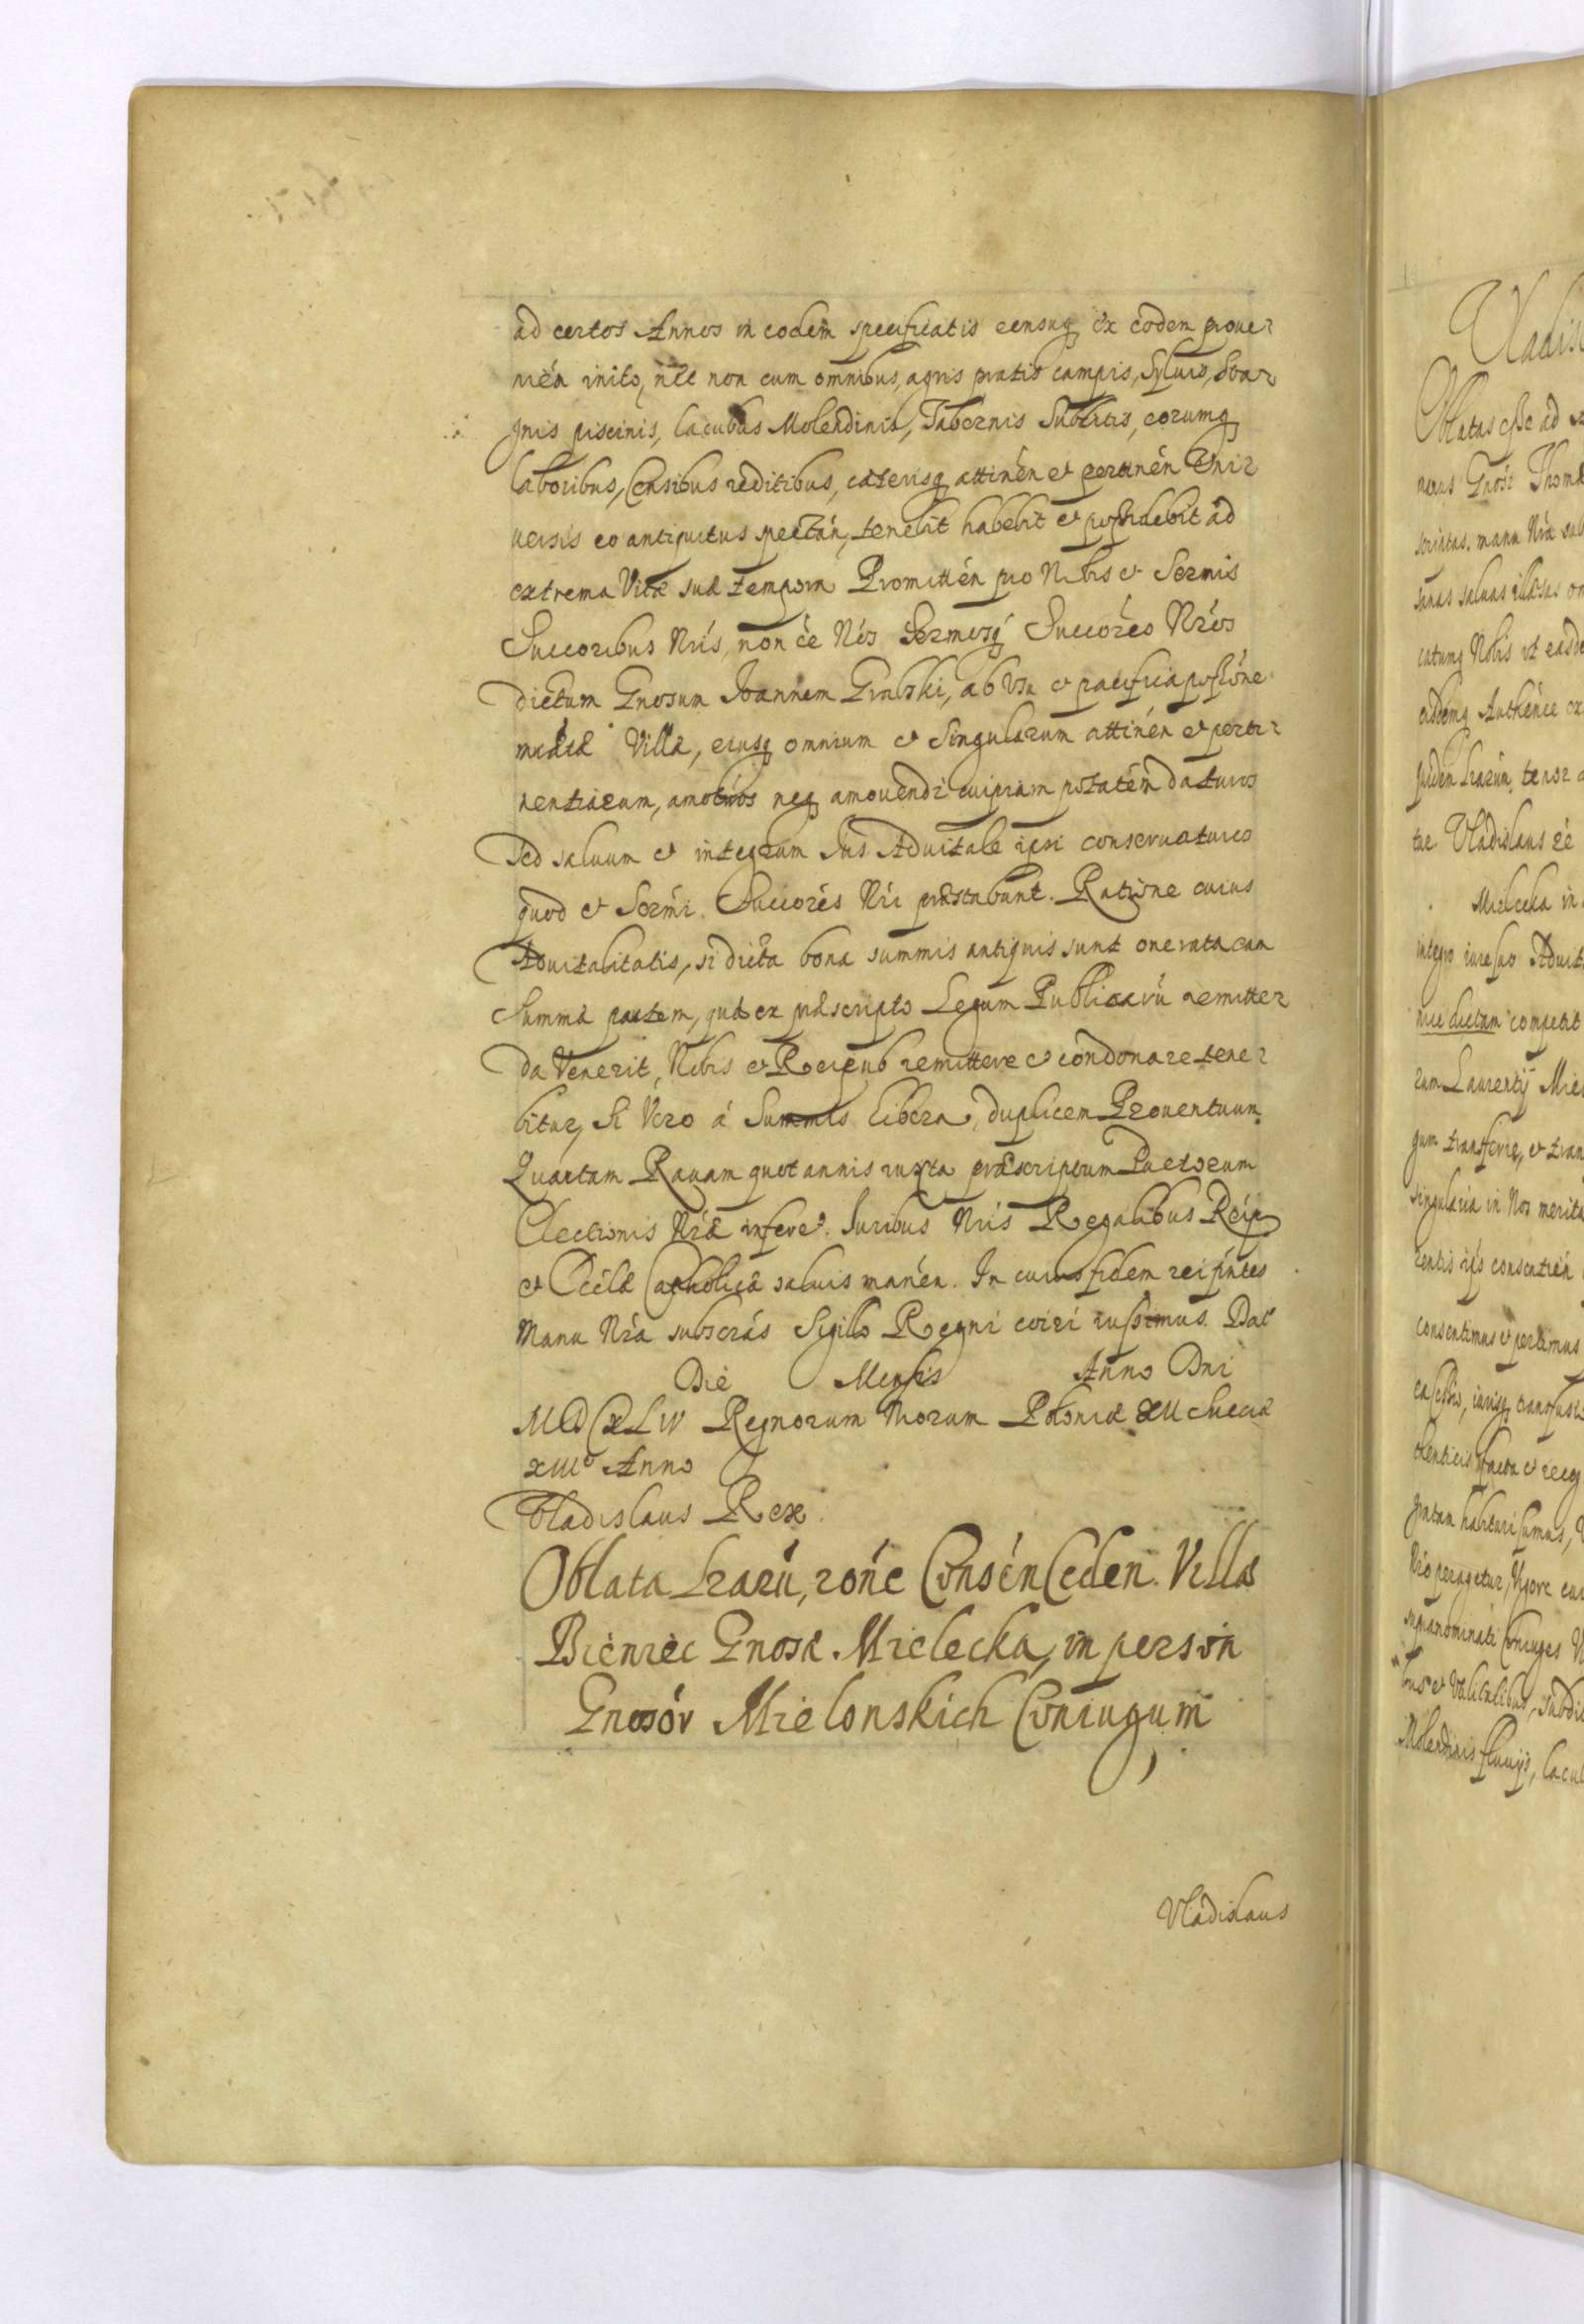 ad certos Annos in eodem specificatis censuq ex eodem proue-
nién inito, nec non cum omnibus, agris pratis campis, Syluis, Sta-
gnis piscinis, lacubus Molendinis, Tabernis Subditis, eorumq
laboribus, Censibus reditibus, caeterisq attinén et pertinén Vni-
uersis eo antiquitus spectán, tenebit habebit et possidebit ad
extrema Vitae suae tempora Promittén pro Nobis et Sermis
Succoribus Nris, non ee Nos Sermosq Succores Nros
dictum Gnosum Joannem Grabski, ab Vsu et pacifica possióne
Villae, eiusq omnium et Singularum attinén et perti-
nentiarum, amoturos neq amouendi cuipiam potatém daturos
sed saluum et integrum Ius Aduitale ipsi conseruaturos
quod et Sermi Succores Nri praestabunt. Ratione cuius
Aduitalitatis, si dicta bona summis antiquis sunt onerata eam
Summae partem, quae ex praescripto Legum Publicarú remitten-
da Venerit, Nobis et Reipub remittere et condonare tene-
bitur, Si Vero á Summis libera, duplicem Prouentuum
Quartam Rauam quotannis iuxta praescriptum Pactorum
Electionis Nrae inferet. Iuribus Nris Regalibus Reip
et Eccliae Catholicae saluis manén. In cuius fidem
Manu Nra subscrás Sigillo Regni coiri iussimus. Dat
Die Mensis Anno Dni
MDCXLIV Regnorum Nrorum Poloniae XII Sueciae
XIII Anno
Vladislaus Rex.
Oblata Lrarú, róne Consén Ceden. Villae
Bieniec Gnosae Mielecka, in person
Gnosór Mielonskich Coniugum
Vladislaus
Vladisl
Oblatas esse ad
Gnosi Thom
scriptas. manu Nra sub
sanas saluas illaesas om
catumq Nobis vt easde
eidemq Authénce ex
quidem Lrarún, tenor
tur Vladislaus
Mielecka in
integro iure suo Aduit
competit
rum Laurentij Miel
gum transferre, et tran
singularia in Nos merita
consentién
consentimus et
Vigore
supranominati Coniuges
Molendinis fluuijs, lacu